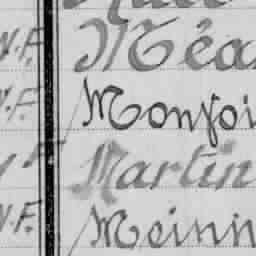 N.F. Méa
N.F. Monfoi
F Martin
N.F. Meinn